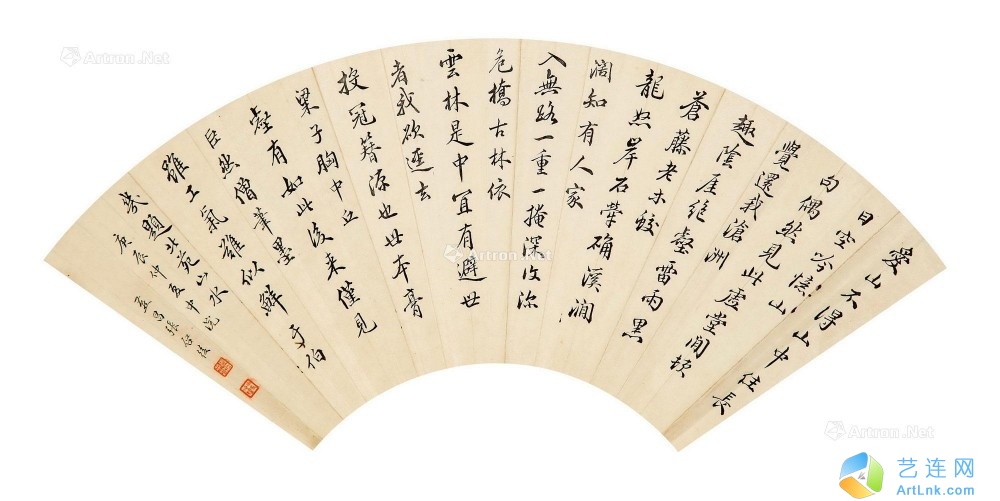 愛山不得山中住長
日空吟憶
句偶然見此山
覺還我滄洲
趣陰厓絕壑雷雨黑
蒼藤老木蛟
龍怒岸石犖确溪澗
闊知有人家
入無路一重一掩深復深
危橋古林依
雲林是中宜有避世
者我欲逕去
投冠簪源也世本膏
梁子胸中丘
壑有如此後來僅見
巨然僧筆墨
雖工氣難似鮮于伯
幾題北苑山水
庚辰仲夏中浣
孟昌張
Artron.Net
Artron.Net
Artron.Net
艺连网
ArtLnk.com